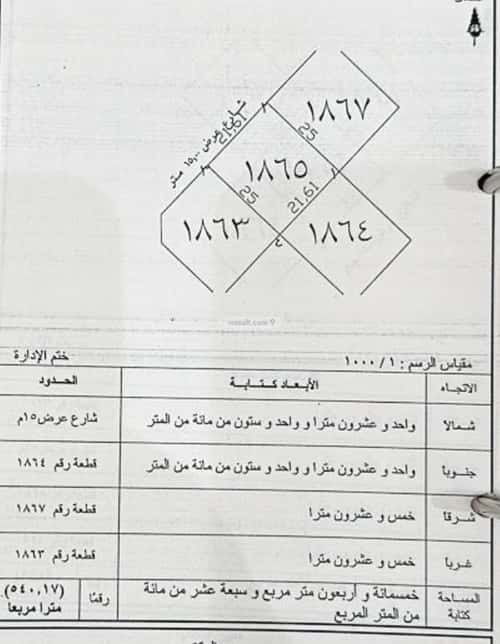 ١٨٦٧
شارع عرض ١٥,٠ متر
21.61
25
١٨٦٥
25
21.61
١٨٦٣
١٨٦٤
٤
مقياس الرسم : ١ / ١٠٠٠
ختم الإدارة
الاتجاه
الأبعاد كتابة
الحدود
شمالا
واحد و عشرون مترا و واحد و ستون من مائة من المتر
شارع عرض١٥م
جنوبا
واحد و عشرون مترا و واحد و ستون من مائة من المتر
قطعة رقم ١٨٦٤
شرقا
خمس و عشرون مترا
قطعة رقم ١٨٦٧
غربا
خمس و عشرون مترا
قطعة رقم ١٨٦٣
المساحة
كتابة
خمسمائة و أربعون متر مربع و سبعة عشر من مائة
من المتر المربع
رقما
(٥٤٠,١٧).
مترا مربعا